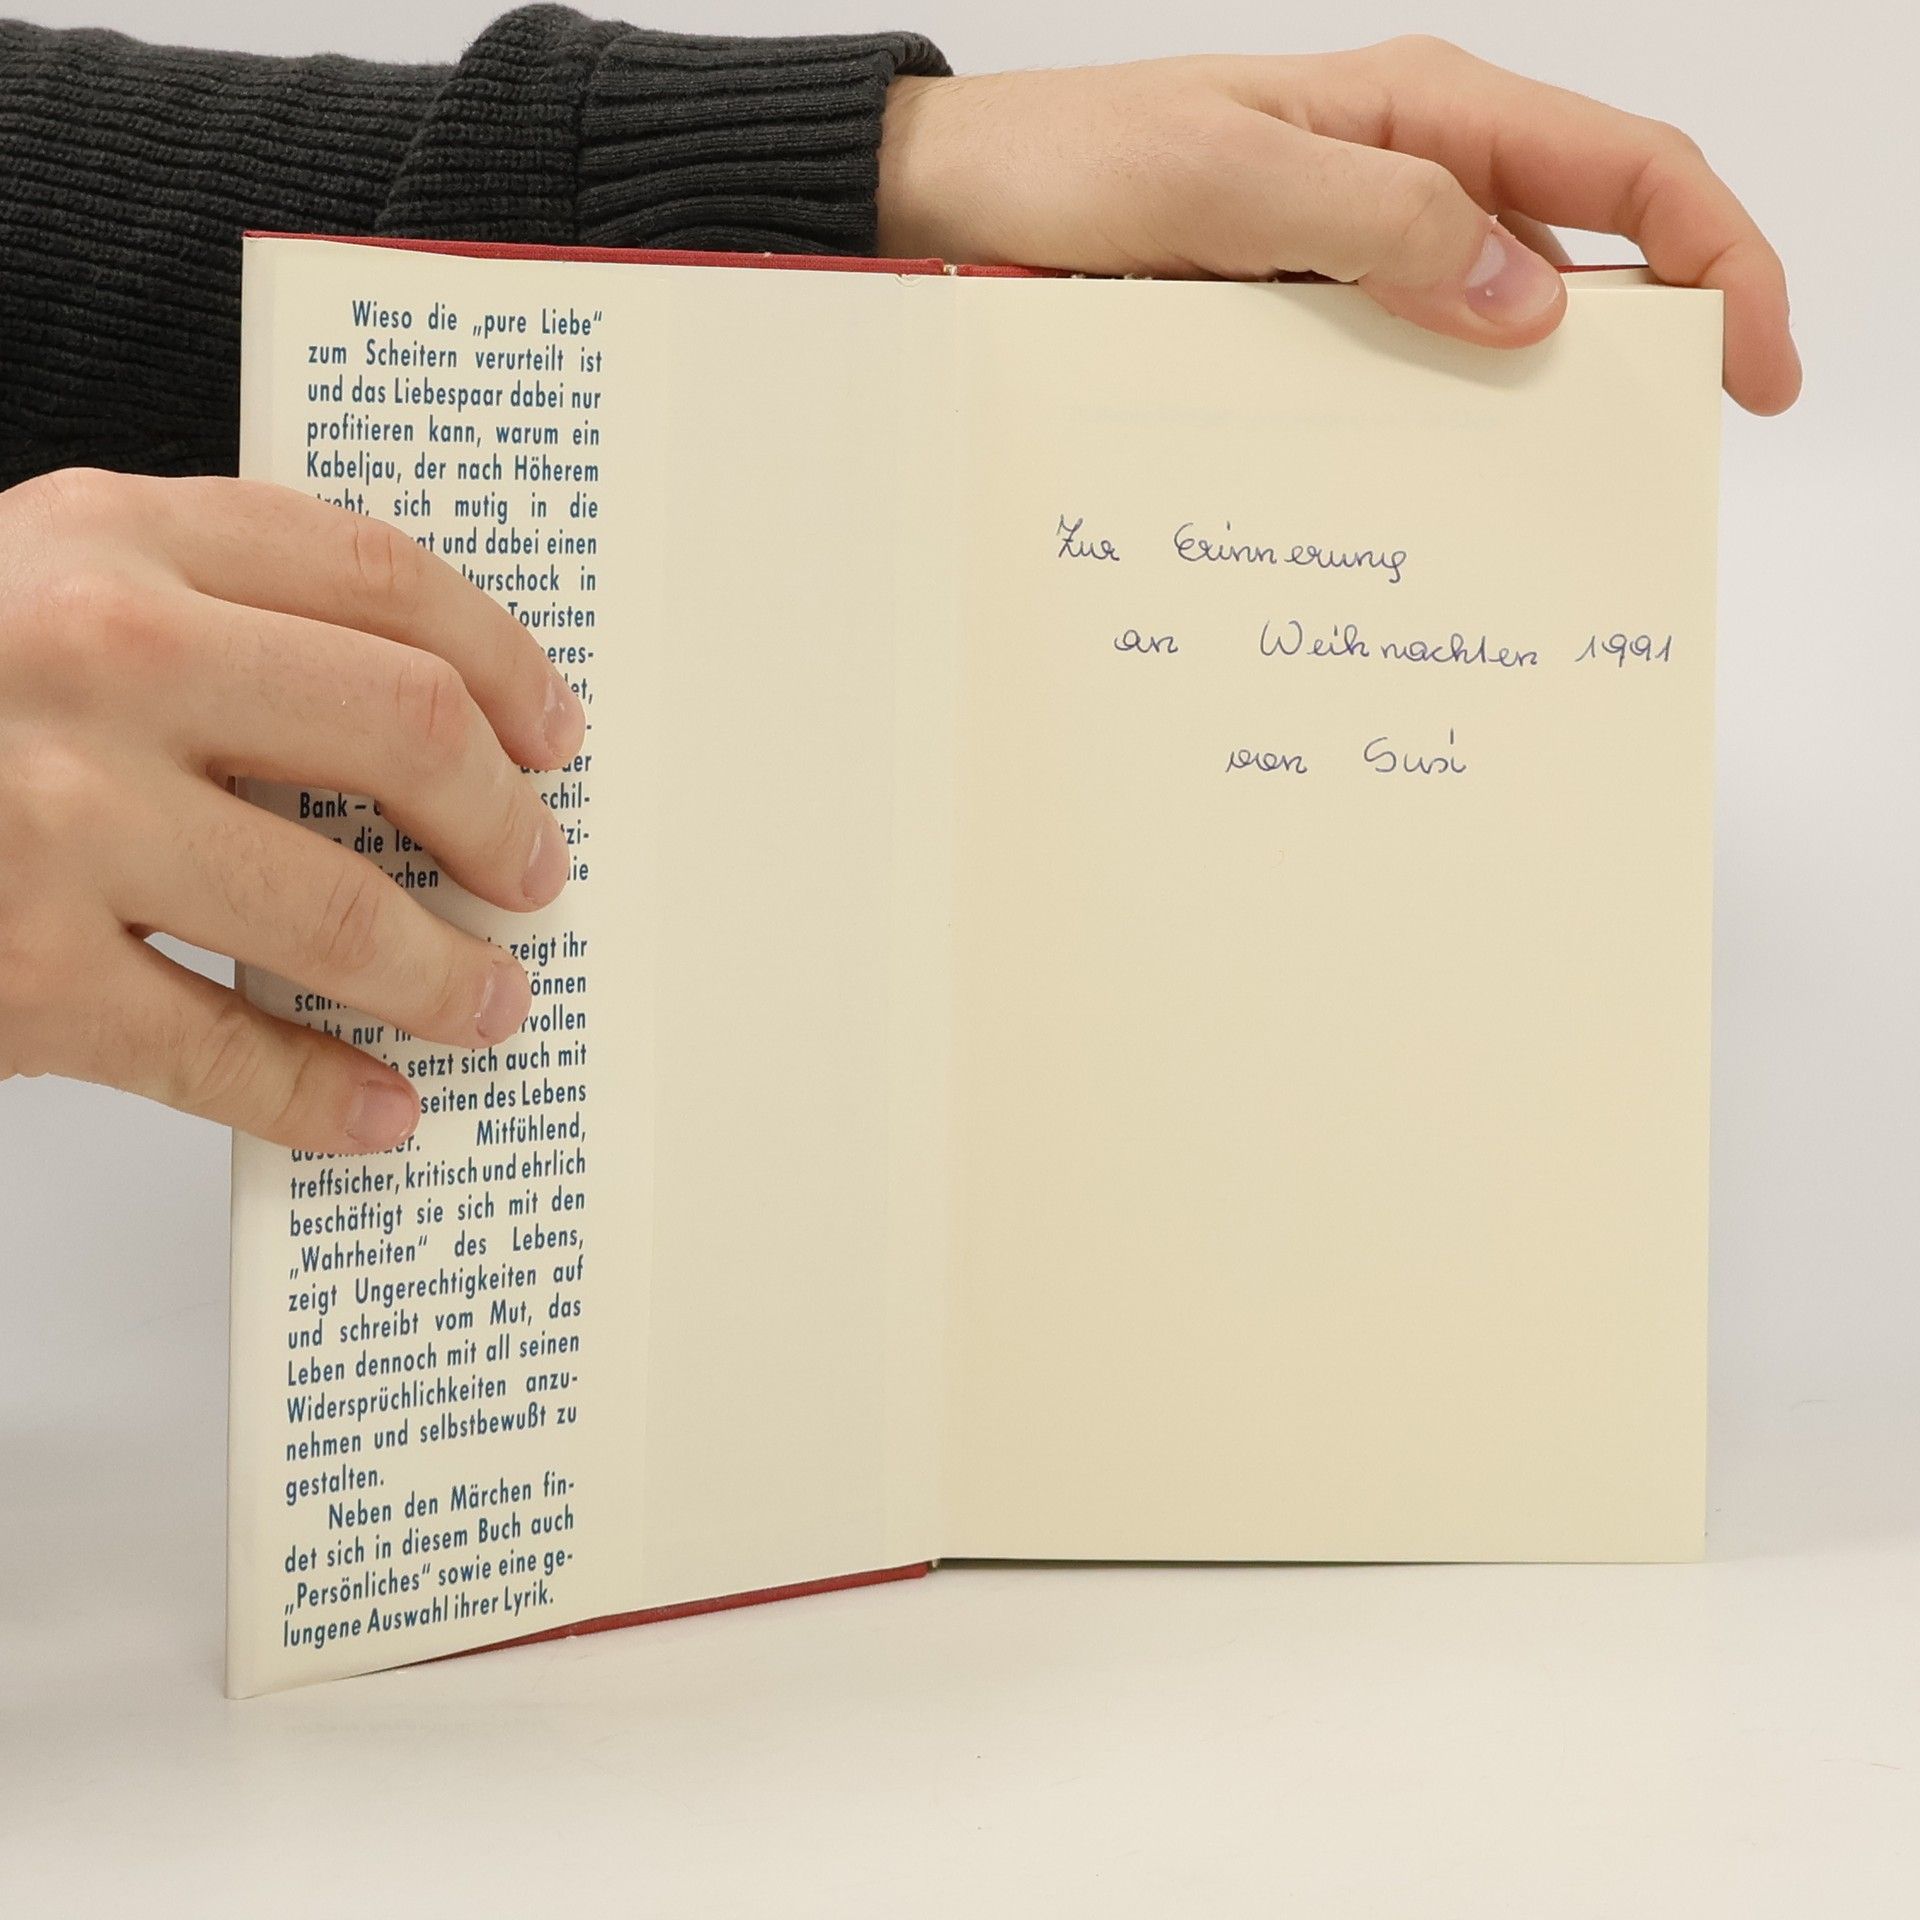 Wieso die „pure Liebe“
zum Scheitern verurteilt ist
und das Liebespaar dabei nur
profitieren kann, warum ein
Kabeljau, der nach Höherem
sich mutig in die
und dabei einen
in
Touristen
der
Bank –
die
zeigt ihr
nur
setzt sich auch mit
des Lebens
Mitfühlend,
treffsicher, kritisch und ehrlich
beschäftigt sie sich mit den
„Wahrheiten“ des Lebens,
zeigt Ungerechtigkeiten auf
und schreibt vom Mut, das
Leben dennoch mit all seinen
Widersprüchlichkeiten anzu-
nehmen und selbstbewußt zu
gestalten.
Neben den Märchen fin-
det sich in diesem Buch auch
„Persönliches“ sowie eine ge-
lungene Auswahl ihrer Lyrik.
Zur Erinnerung
an Weihnachten 1991
von Susi